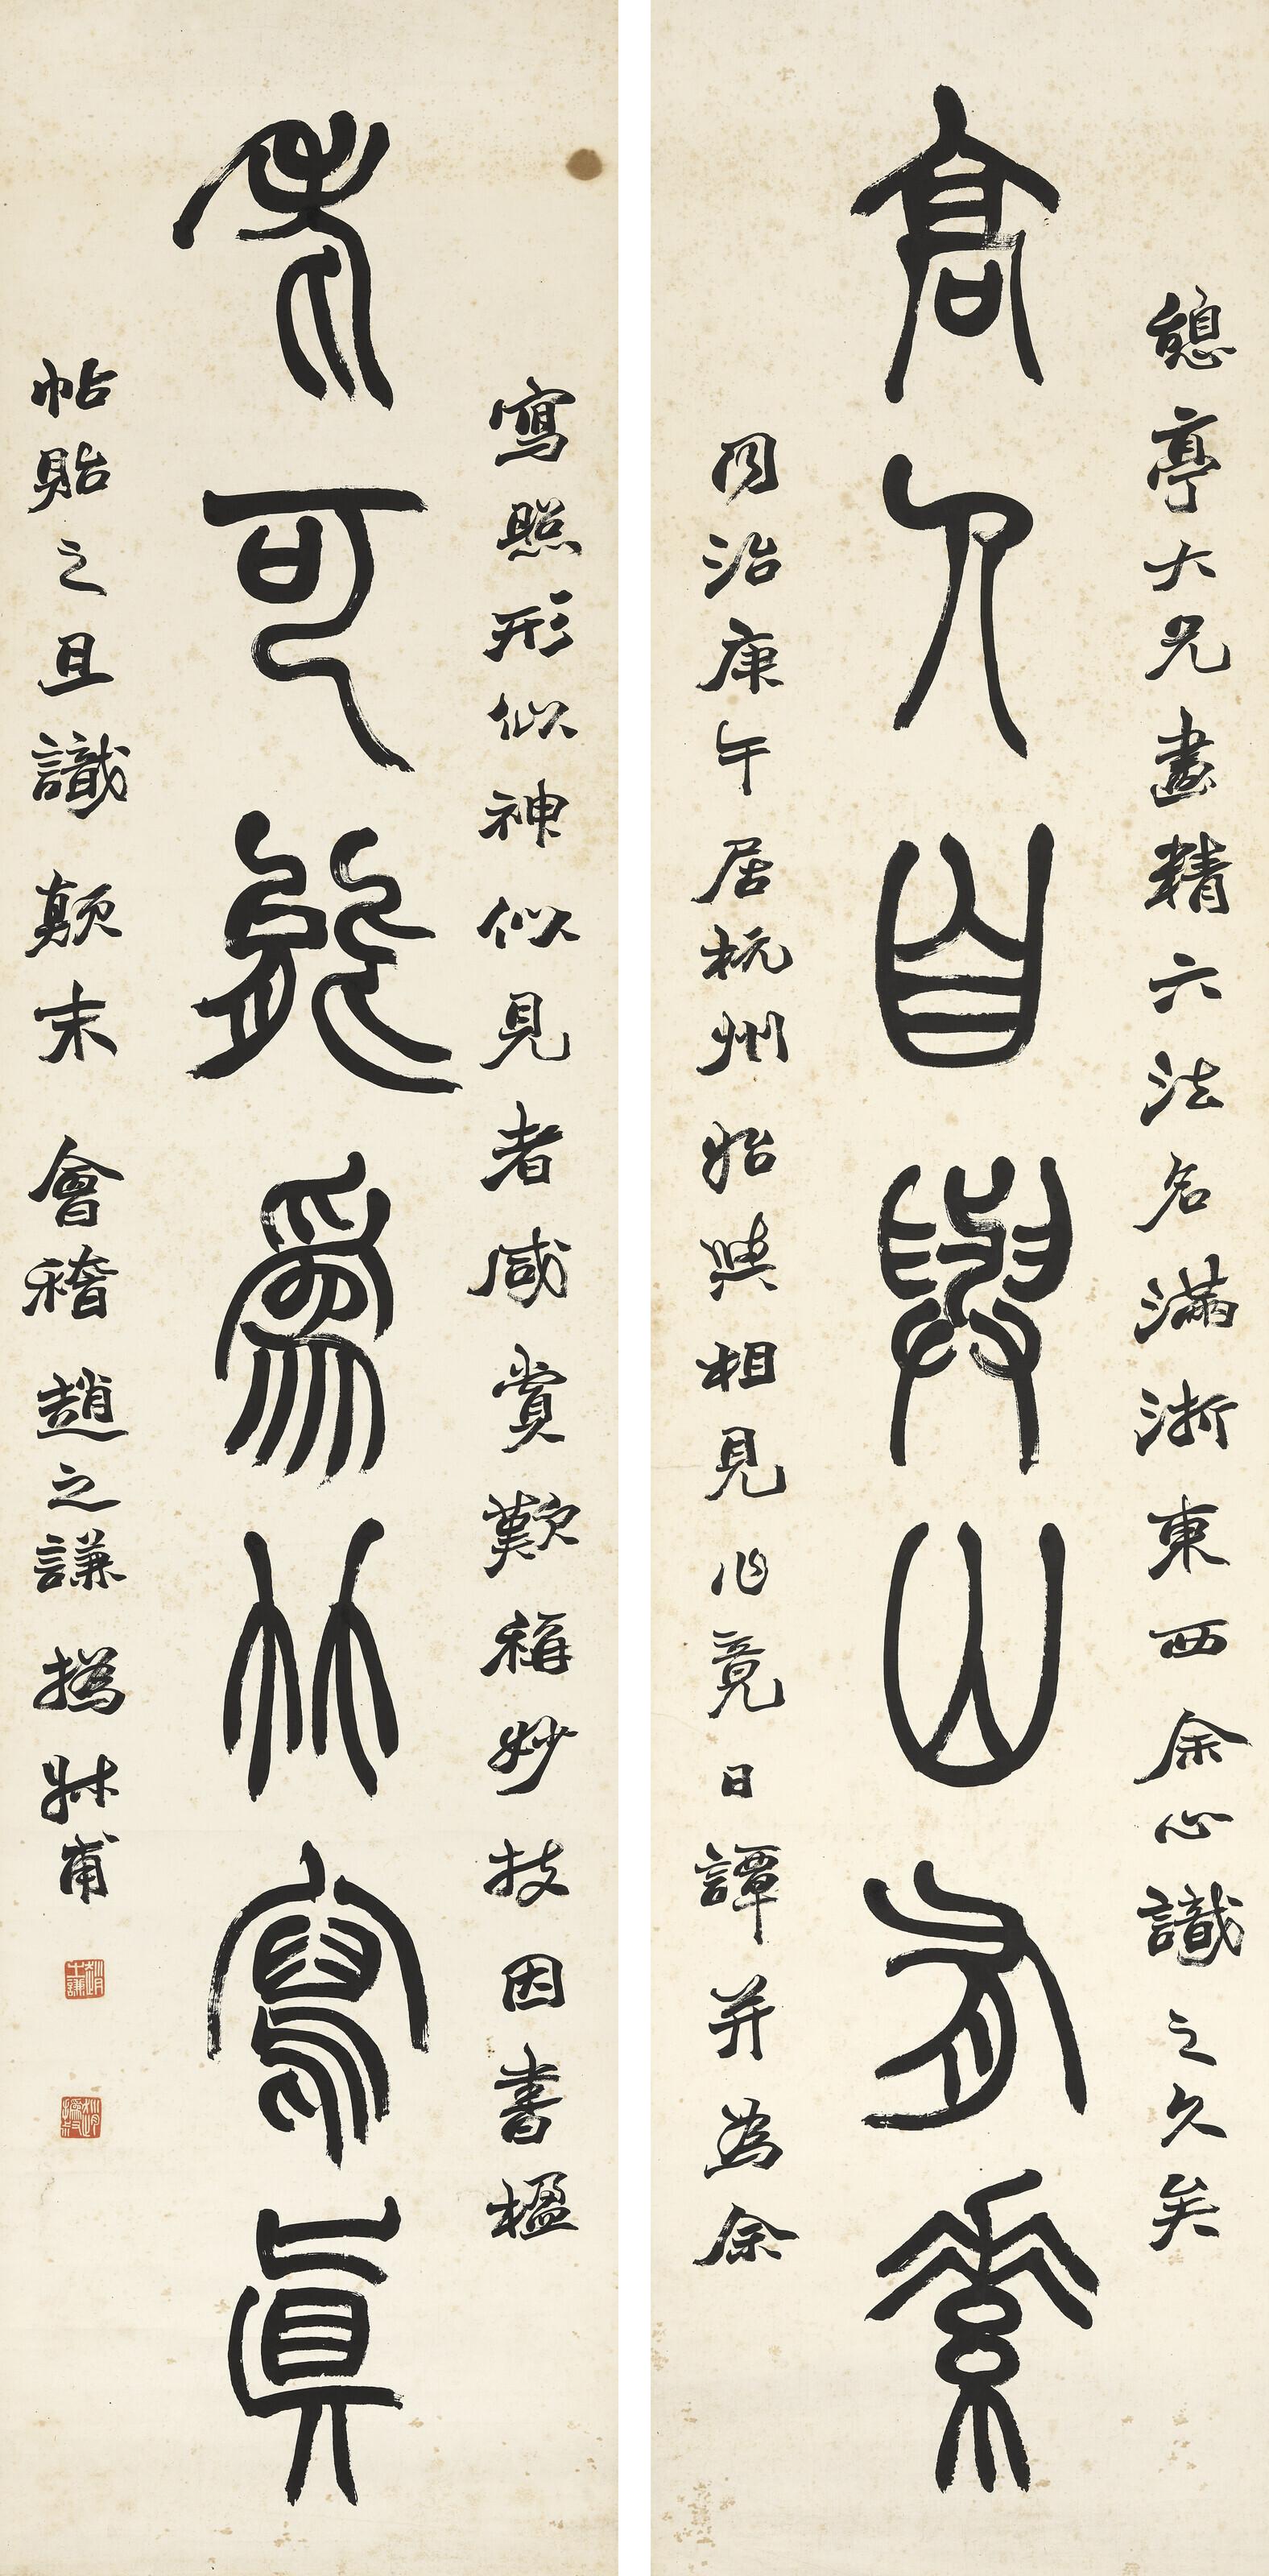 憩亭大兄畫精六法名滿浙東西余心識之久矣
高人自與山有素
同治庚午居杭州始與相見作竟日譚并為余
寫照形似神似見者咸賞歎稱妙技因書楹
老可能為竹寫真
帖貽之且識顛末會稽趙之謙撝叔甫
趙之謙
趙撝叔